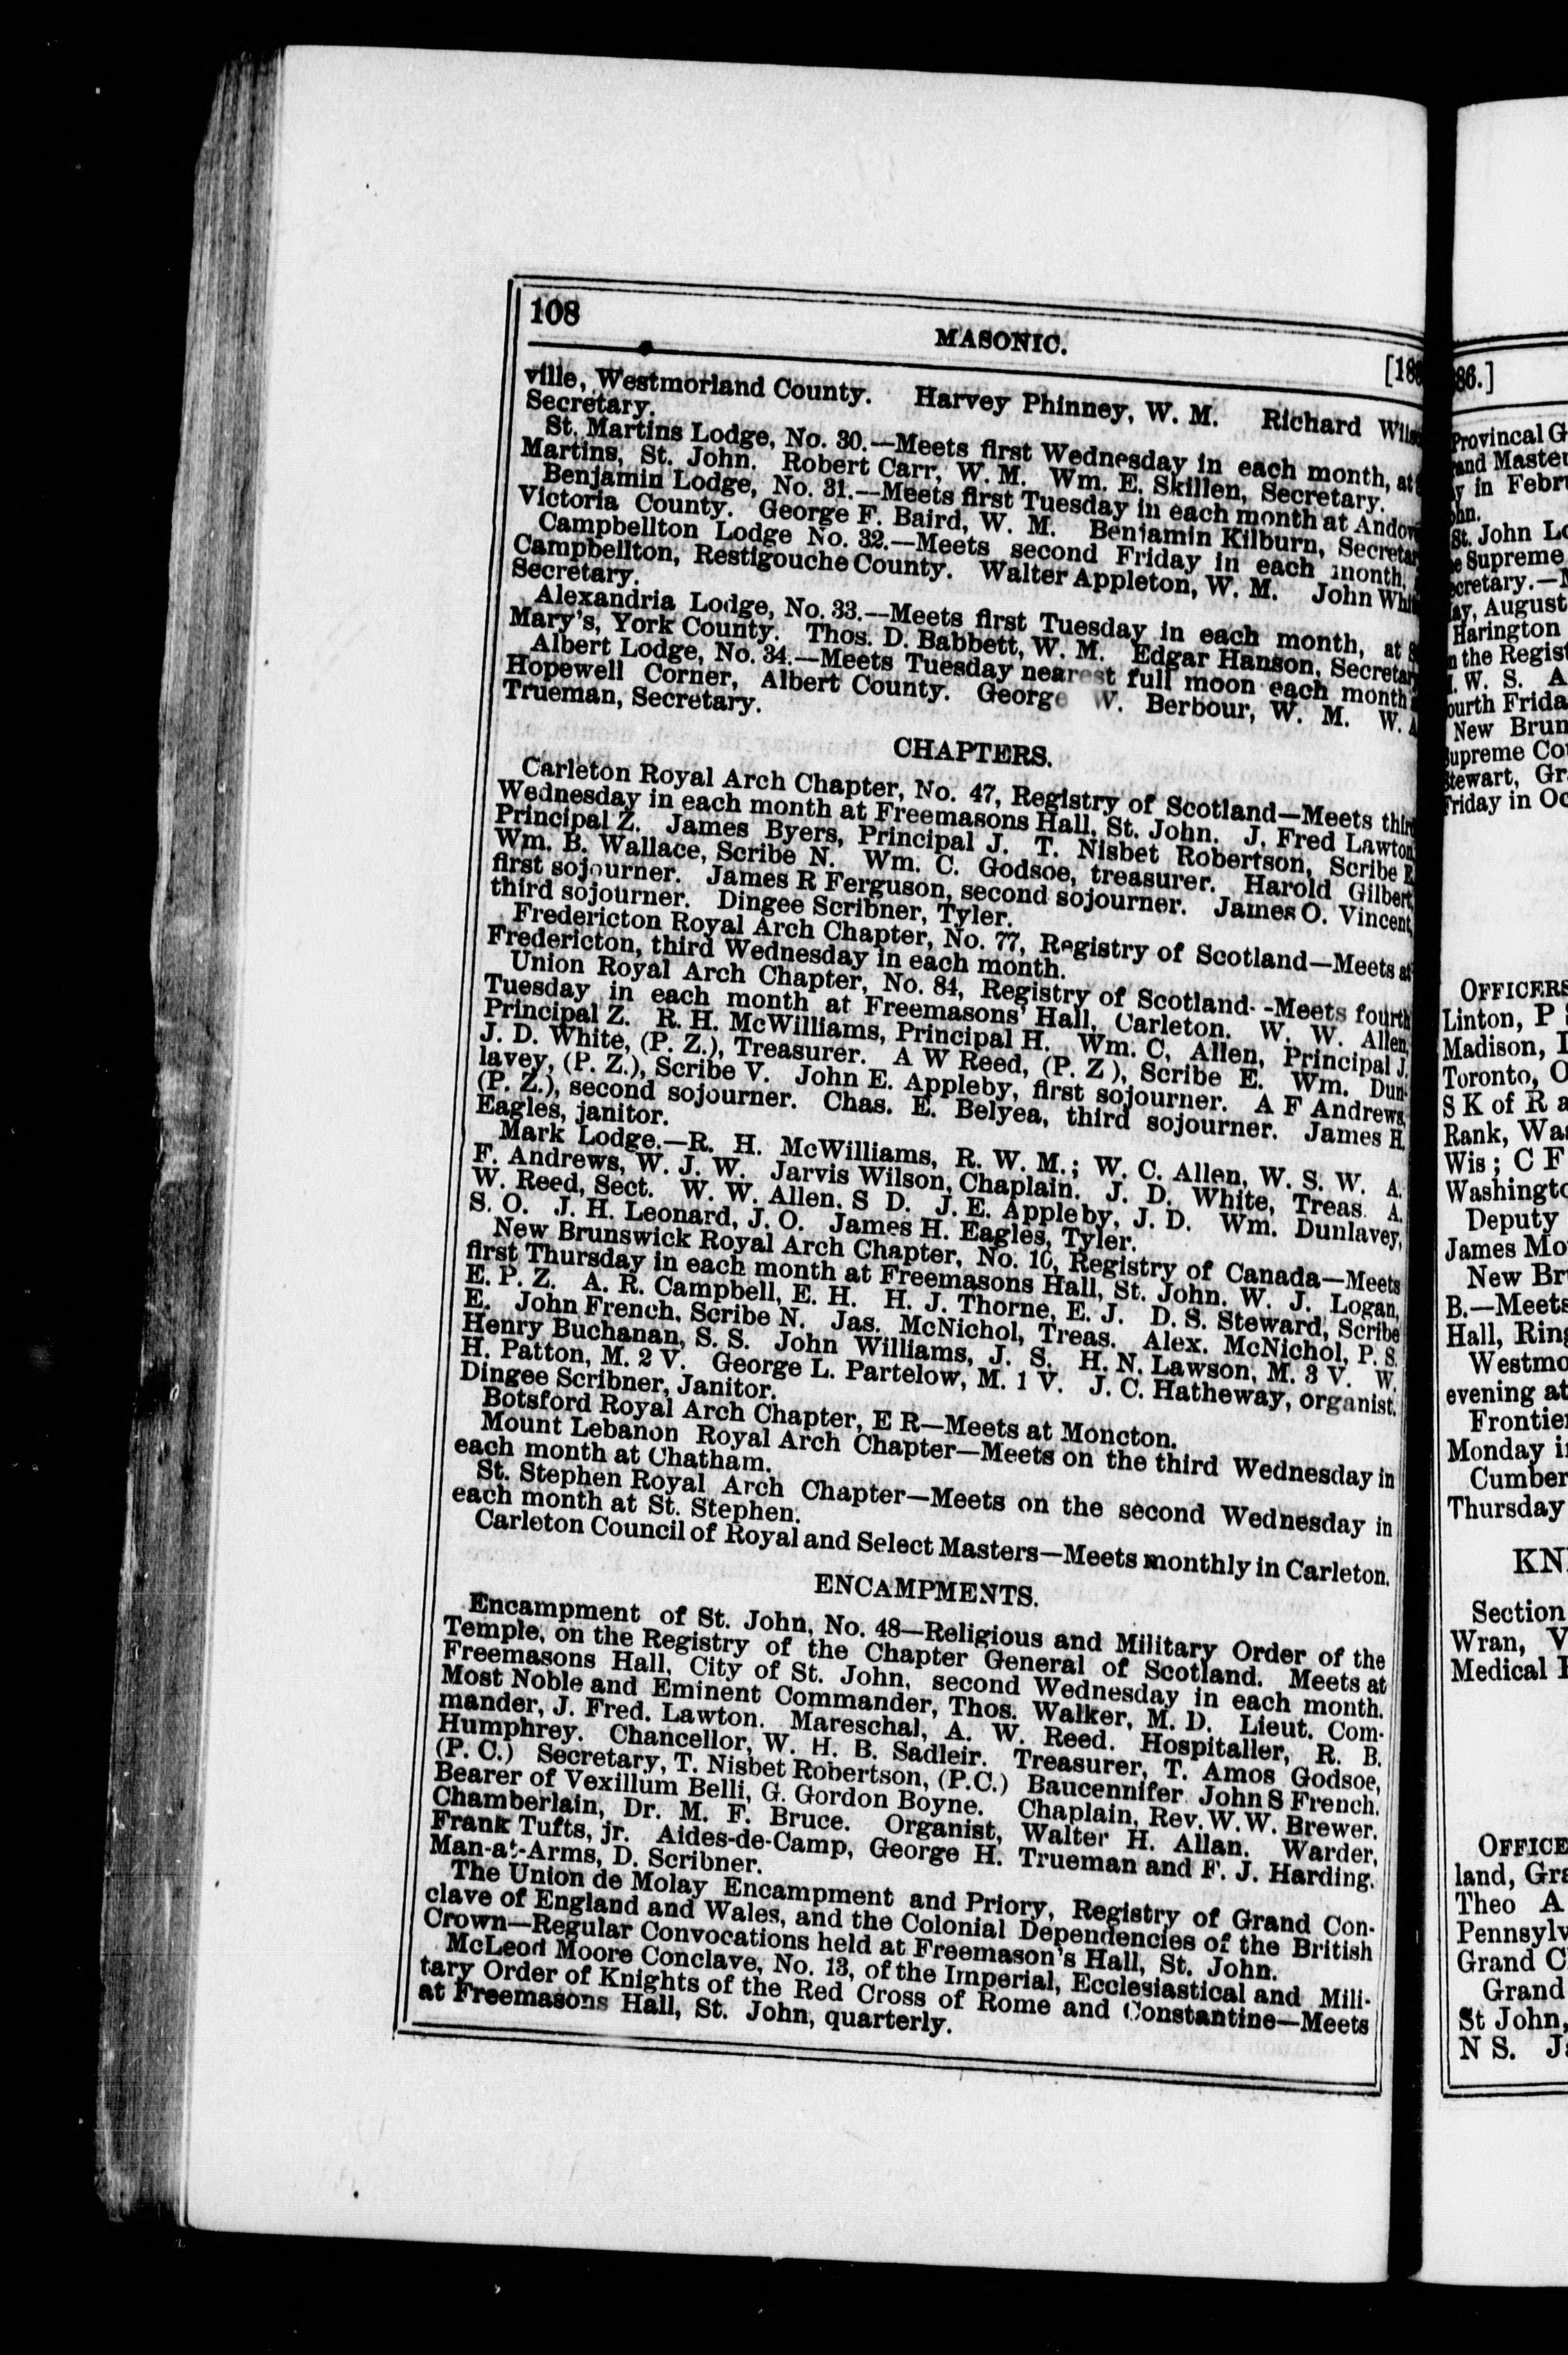 108
MASONIC.
[188
ville, Westmorland County. Harvey Phinney, W. M. Richard
Secretary.
St. Martins Lodge, No. 30.—Meets first Wednesday in each month, at
Martins, St. John. Robert Carr, W. M. Wm. E. Skillen, Secretary.
Benjamin Lodge, No. 31.—Meets first Tuesday in each month at
Victoria County. George F. Baird, W. M. Benjamin Kilburn,
Campbellton Lodge No. 32.—Meets second Friday in each month,
Campbellton, Restigouche County. Walter Appleton, W. M. John
Secretary.
Alexandria Lodge, No. 33.—Meets first Tuesday in each month, at
Mary's, York County. Thos. D. Babbett, W. M. Edgar Hanson,
Albert Lodge, No. 34.—Meets Tuesday nearest full moon each month
Hopewell Corner, Albert County. George W. Berbour, W. M. W.
Trueman, Secretary.
CHAPTERS.
Carleton Royal Arch Chapter, No. 47, Registry of Scotland—Meets third
Wednesday in each month at Freemasons Hall, St. John. J. Fred Lawton,
Principal Z. James Byers, Principal J. T. Nisbet Robertson, Scribe E.
Wm. B. Wallace, Scribe N. Wm. C. Godsoe, treasurer. Harold Gilbert,
first sojourner. James R Ferguson, second sojourner. James O. Vincent,
third sojourner. Dingee Scribner, Tyler.
Fredericton Royal Arch Chapter, No. 77, Registry of Scotland—Meets at
Fredericton, third Wednesday in each month.
Union Royal Arch Chapter, No. 84, Registry of Scotland--Meets fourth
Tuesday in each month at Freemasons' Hall, Carleton. W. W. Allen,
Principal Z. R. H. McWilliams, Principal H. Wm. C. Allen, Principal J.
J. D. White, (P. Z.), Treasurer. A W Reed, (P. Z), Scribe E. Wm. Dun-
lavey, (P. Z.), Scribe V. John E. Appleby, first sojourner. A F Andrews,
(P. Z.), second sojourner. Chas. E. Belyea, third sojourner. James H.
Eagles, janitor.
Mark Lodge.—R. H. McWilliams, R. W. M.; W. C. Allen, W. S. W. A.
F. Andrews, W. J. W. Jarvis Wilson, Chaplain. J. D. White, Treas. A.
W. Reed, Sect. W. W. Allen, S D. J. E. Appleby, J. D. Wm. Dunlavey,
S. O. J. H. Leonard, J. O. James H. Eagles, Tyler.
New Brunswick Royal Arch Chapter, No. 10, Registry of Canada—Meets
first Thursday in each month at Freemasons Hall, St. John. W. J. Logan,
E. P. Z. A. R. Campbell, E. H. H. J. Thorne, E. J. D. S. Steward, Scribe
E. John French, Scribe N. Jas. McNichol, Treas. Alex. McNichol, P. S.
Henry Buchanan, S. S. John Williams, J. S. H. N. Lawson, M. 3 V. W.
H. Patton, M. 2 V. George L. Partelow, M. 1 V. J. C. Hatheway, organist.
Dingee Scribner, Janitor.
Botsford Royal Arch Chapter, E R—Meets at Moncton.
Mount Lebanon Royal Arch Chapter—Meets on the third Wednesday in
each month at Chatham.
St. Stephen Royal Arch Chapter—Meets on the second Wednesday in
each month at St. Stephen.
Carleton Council of Royal and Select Masters—Meets monthly in Carleton.
ENCAMPMENTS.
Encampment of St. John, No. 48—Religious and Military Order of the
Temple, on the Registry of the Chapter General of Scotland. Meets at
Freemasons Hall, City of St. John, second Wednesday in each month.
Most Noble and Eminent Commander, Thos. Walker, M. D. Lieut. Com-
mander, J. Fred. Lawton. Mareschal, A. W. Reed. Hospitaller, R. B.
Humphrey. Chancellor, W. H. B. Sadleir. Treasurer, T. Amos Godsoe,
(P. C.) Secretary, T. Nisbet Robertson, (P.C.) Baucennifer John S French.
Bearer of Vexillum Belli, G. Gordon Boyne. Chaplain, Rev. W. W. Brewer.
Chamberlain, Dr. M. F. Bruce. Organist, Walter H. Allan. Warder,
Frank Tufts, jr. Aides-de-Camp, George H. Trueman and F. J. Harding.
Man-at-Arms, D. Scribner.
The Union de Molay Encampment and Priory, Registry of Grand Con-
clave of England and Wales, and the Colonial Dependencies of the British
Crown—Regular Convocations held at Freemason's Hall, St. John.
McLeod Moore Conclave, No. 13, of the Imperial, Ecclesiastical and Mili-
tary Order of Knights of the Red Cross of Rome and Constantine—Meets
at Freemasons Hall, St. John, quarterly.
86.]
Provincal G
and Master
in Febru
St. John Lo
Supreme
August
Harington
the Regist
W. S. A
Frida
New Brun
Supreme Co
Stewart, Gr
Friday in Oc
OFFICERS
Linton, P S
Madison, I
Toronto, O
S K of R a
Rank, Wa
Wis; C F
Washingto
Deputy
James Mo
New Br
B.—Meets
Hall, Ring
Westmo
evening at
Frontier
Monday i
Cumber
Thursday
KN
Section
Wran, V
Medical
OFFICE
land, Gra
Theo A
Pennsylv
Grand C
Grand
St John,
N S. Ja